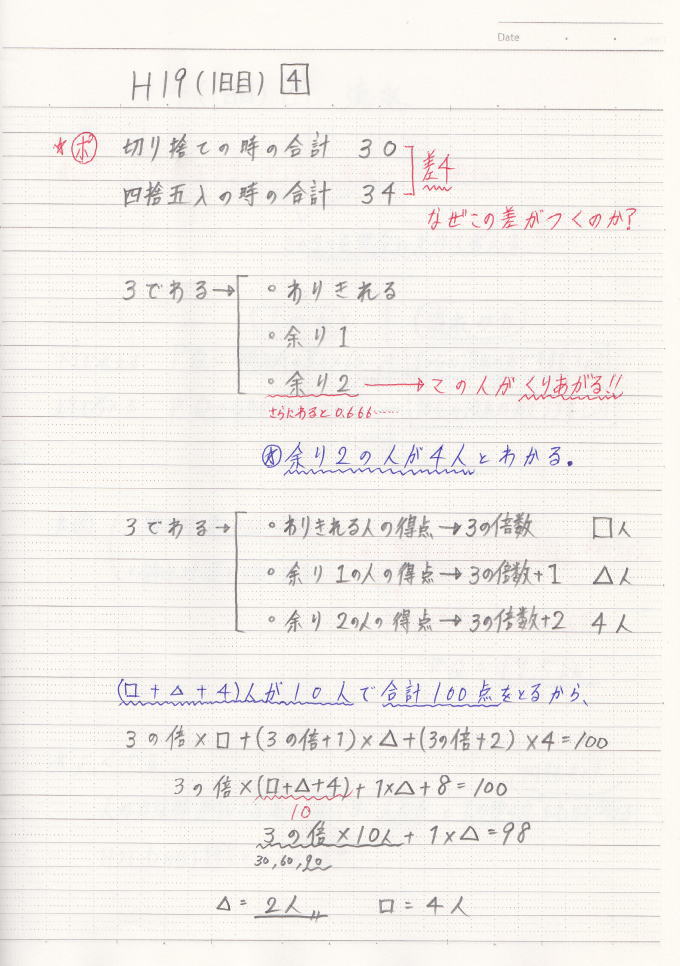 Date
H19(1日目) 4
☆ポ 切り捨ての時の合計 30
差4
四捨五入の時の合計 34
なぜこの差がつくのか?
3でわる→ ・わりきれる
・余り1
・余り2 → この人がくりあがる!!
さらにわると 0.666……
余り2の人が4人とわかる。
3でわる→ ・わりきれる人の得点→3の倍数 □人
・余り1の人の得点→3の倍数+1 △人
・余り2の人の得点→3の倍数+2 4人
(□+△+4)人が10人で合計100点をとるから、
3の倍×□+(3の倍+1)×△+(3の倍+2)×4=100
3の倍×(□+△+4)+1×△+8=100
10
3の倍×10人+1×△=98
30,60,90
△=2人 □=4人